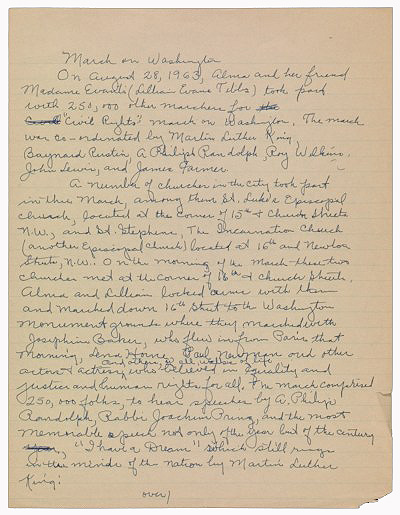 March on Washington
On August 28, 1963, Alma and her friend
Madame Evanti (Lillian Evans Tibbs) took part
with 250,000 other marchers for the
"Civil Rights" march on Washington. The march
was co-ordinated by Martin Luther King,
Baynard Rustin, A Philip Randolph, Roy Wilkins,
John Lewis, and James Farmer.
A number of churches in the city took part
in this March, among them St. Luke's Episcopal
church, located at the corner of 15th & Church Streets
N.W., and St. Stephens, The Incarnation Church
(another Episcopal church) located at 16th and Newton
Streets, N.W. On the morning of the March these two
churches met at the corner of 16th & Church Streets.
Alma and Lillian locked arms with them
and marched down 16th Street to the Washington
monument grounds where they marched with
Josephine Baker, who flew in from Paris that
morning, Lena Horne, Paul Newman and other
and others in all walks of life
actors & actress, who believed in equality and
justice and human rights for all. The march comprised
250,000 folks, to hear speeches by A. Philip
Randolph, Rabbi Joachim Prinz, and the most
memorable speech not only of the year but of the century
"I have a Dream" which still rings
in the minds of the nation by Martin Luther
King.
over)